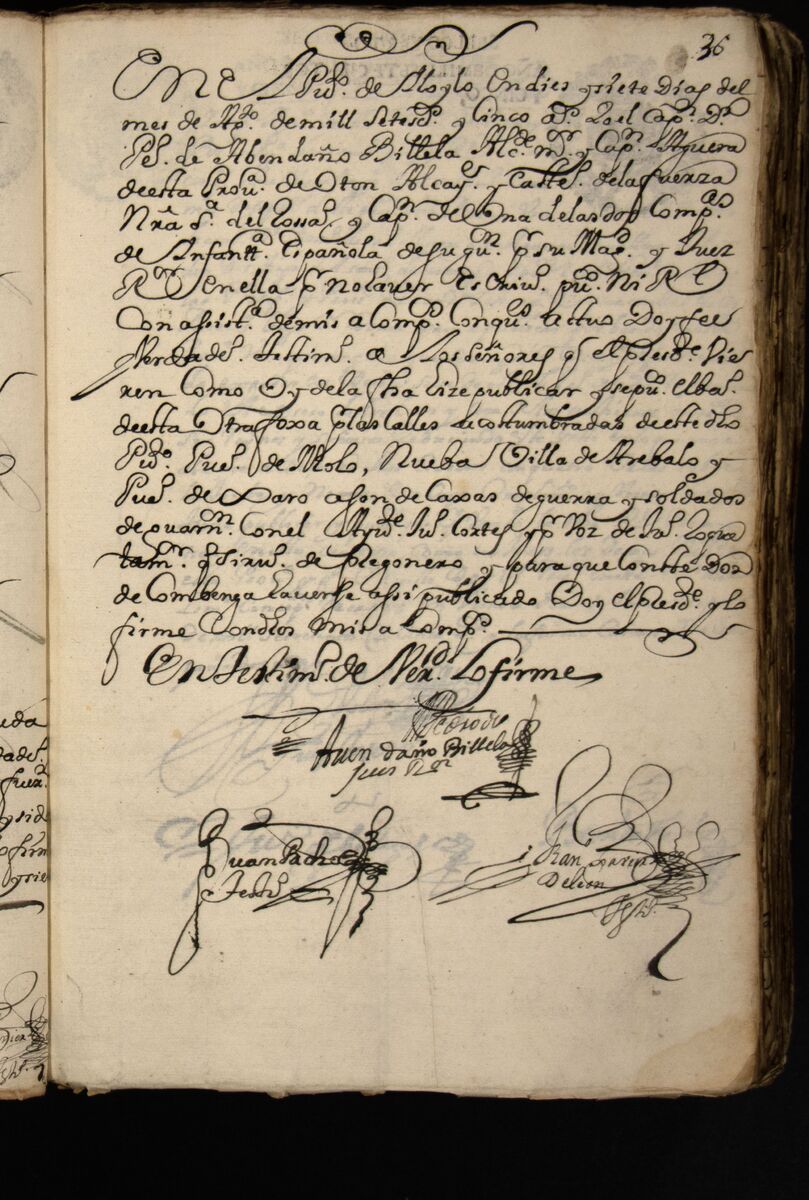 36
En el Pu.º de Yloylo En dies y siete Dias del
mes de Ag.to de mill Setes.s y Cinco a.s Yo el Cap.n D.n
P.º de Abendaño Billela Alc.de m.or y Cap.n Aguerra
de esta Prou.a de Oton Alcay.de y Caste.no de la fuerza
Nrã S.ra del Rossa.o y Cap.n del Una de las dos Comp.as
de Infantt.a Española de su gu.on p.r Su Mag.d y Juez
R.or en ella p.r no hauer Escriu.º pu.co Ni R.l
Con assist.a de mis a Comp.s Con qu.s actuo Doy fee
Verdade.º Testim.º a Los Señores q.e el pres.te Vie
ren Como Oy de la fha hize publicar y se pu.co el ba.º
de esta Otra foxa p.r las Calles acostumbradas de este dho
Pu.to Pue.º de Molo, Nueba Villa de Arebalo y
Pue.º de Xaro a son de Caxas de guerra y soldados
de guarn.on Con el Ayu.te Ju.º Cortes y p.r Voz de Ju.º
tam.r q.e Siru.º de pregonero y para que Contte Don
de Combenga hauerse assi publicado Doy el pres.te y lo
firme Con dhos mis a Comp.s
En Testim.º de Ver.d Lo firme
P.º de
Auen daño Billela
Juez R.or
Juan Pacheco
Testi.º
Fran.co garcia
De leon
Tgº.